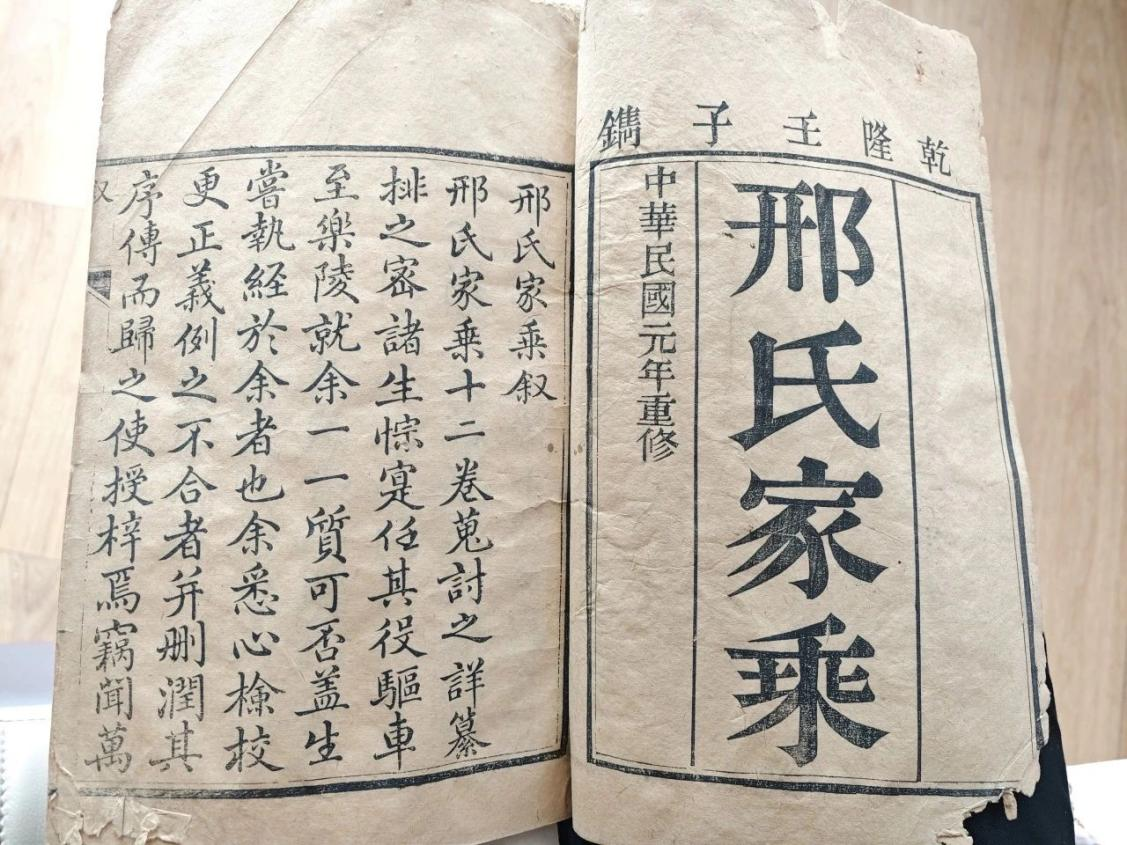 乾隆壬子鐫
邢氏家乘
中華民國元年重修
邢氏家乘叙
邢氏家乘十二卷蒐討之詳纂
排之密諸生悰寔任其役驅車
至樂陵就余一一質可否盖生
嘗執經於余者也余悉心檢校
更正義例之不合者并刪潤其
序傳而歸之使授梓焉竊聞萬